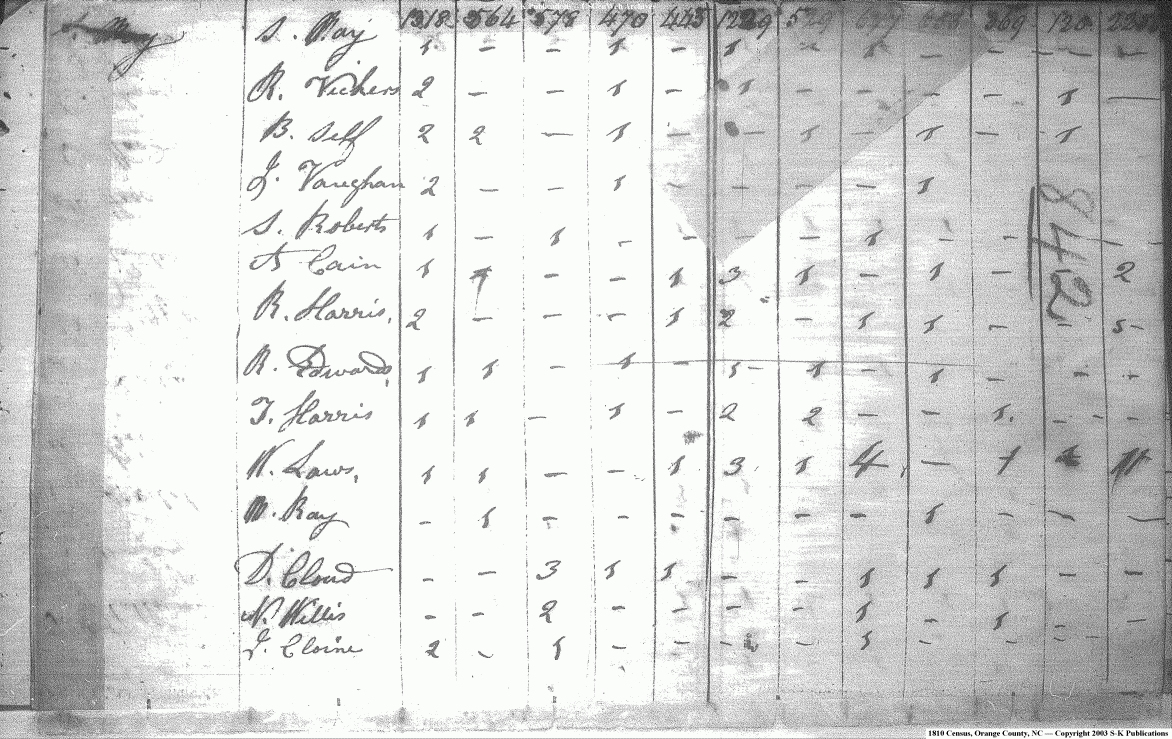 S-K Publications — USGenWeb Archives
1318 564 578 470 443 1229 529 688 369 120
S. Ray 1 — — 1 — 1 — 1 — — — —
R. Vickers 2 — — 1 — 1 — — 1 —
B. Self 2 2 — 1 — — 1 — 1 — 1
J. Vaughan 2 — — 1 — — — — 1
S. Roberts 1 — 1 — — — 1 — — — —
Cain 1 — — 1 3 1 — 1 — 2
R. Harris, 2 — — — 1 2 — 1 1 — — 5 —
R. Edwards, 1 1 — 1 — 1 — 1 — 1 — — —
T. Harris 1 1 — 1 — 2 2 — — 1. — —
W. Laws, 1 1 — — 1 3 1 4 — 1
M. Ray — 1 — — — — — — 1 — — —
D. Cloud — — 3 1 1 — — 1 1 1 — —
N. Willis — — 2 — — — — 1 — 1 — —
J. Cloine 2 — 1 — — — 1 — — — —
842
1810 Census, Orange County, NC — Copyright 2003 S-K Publications